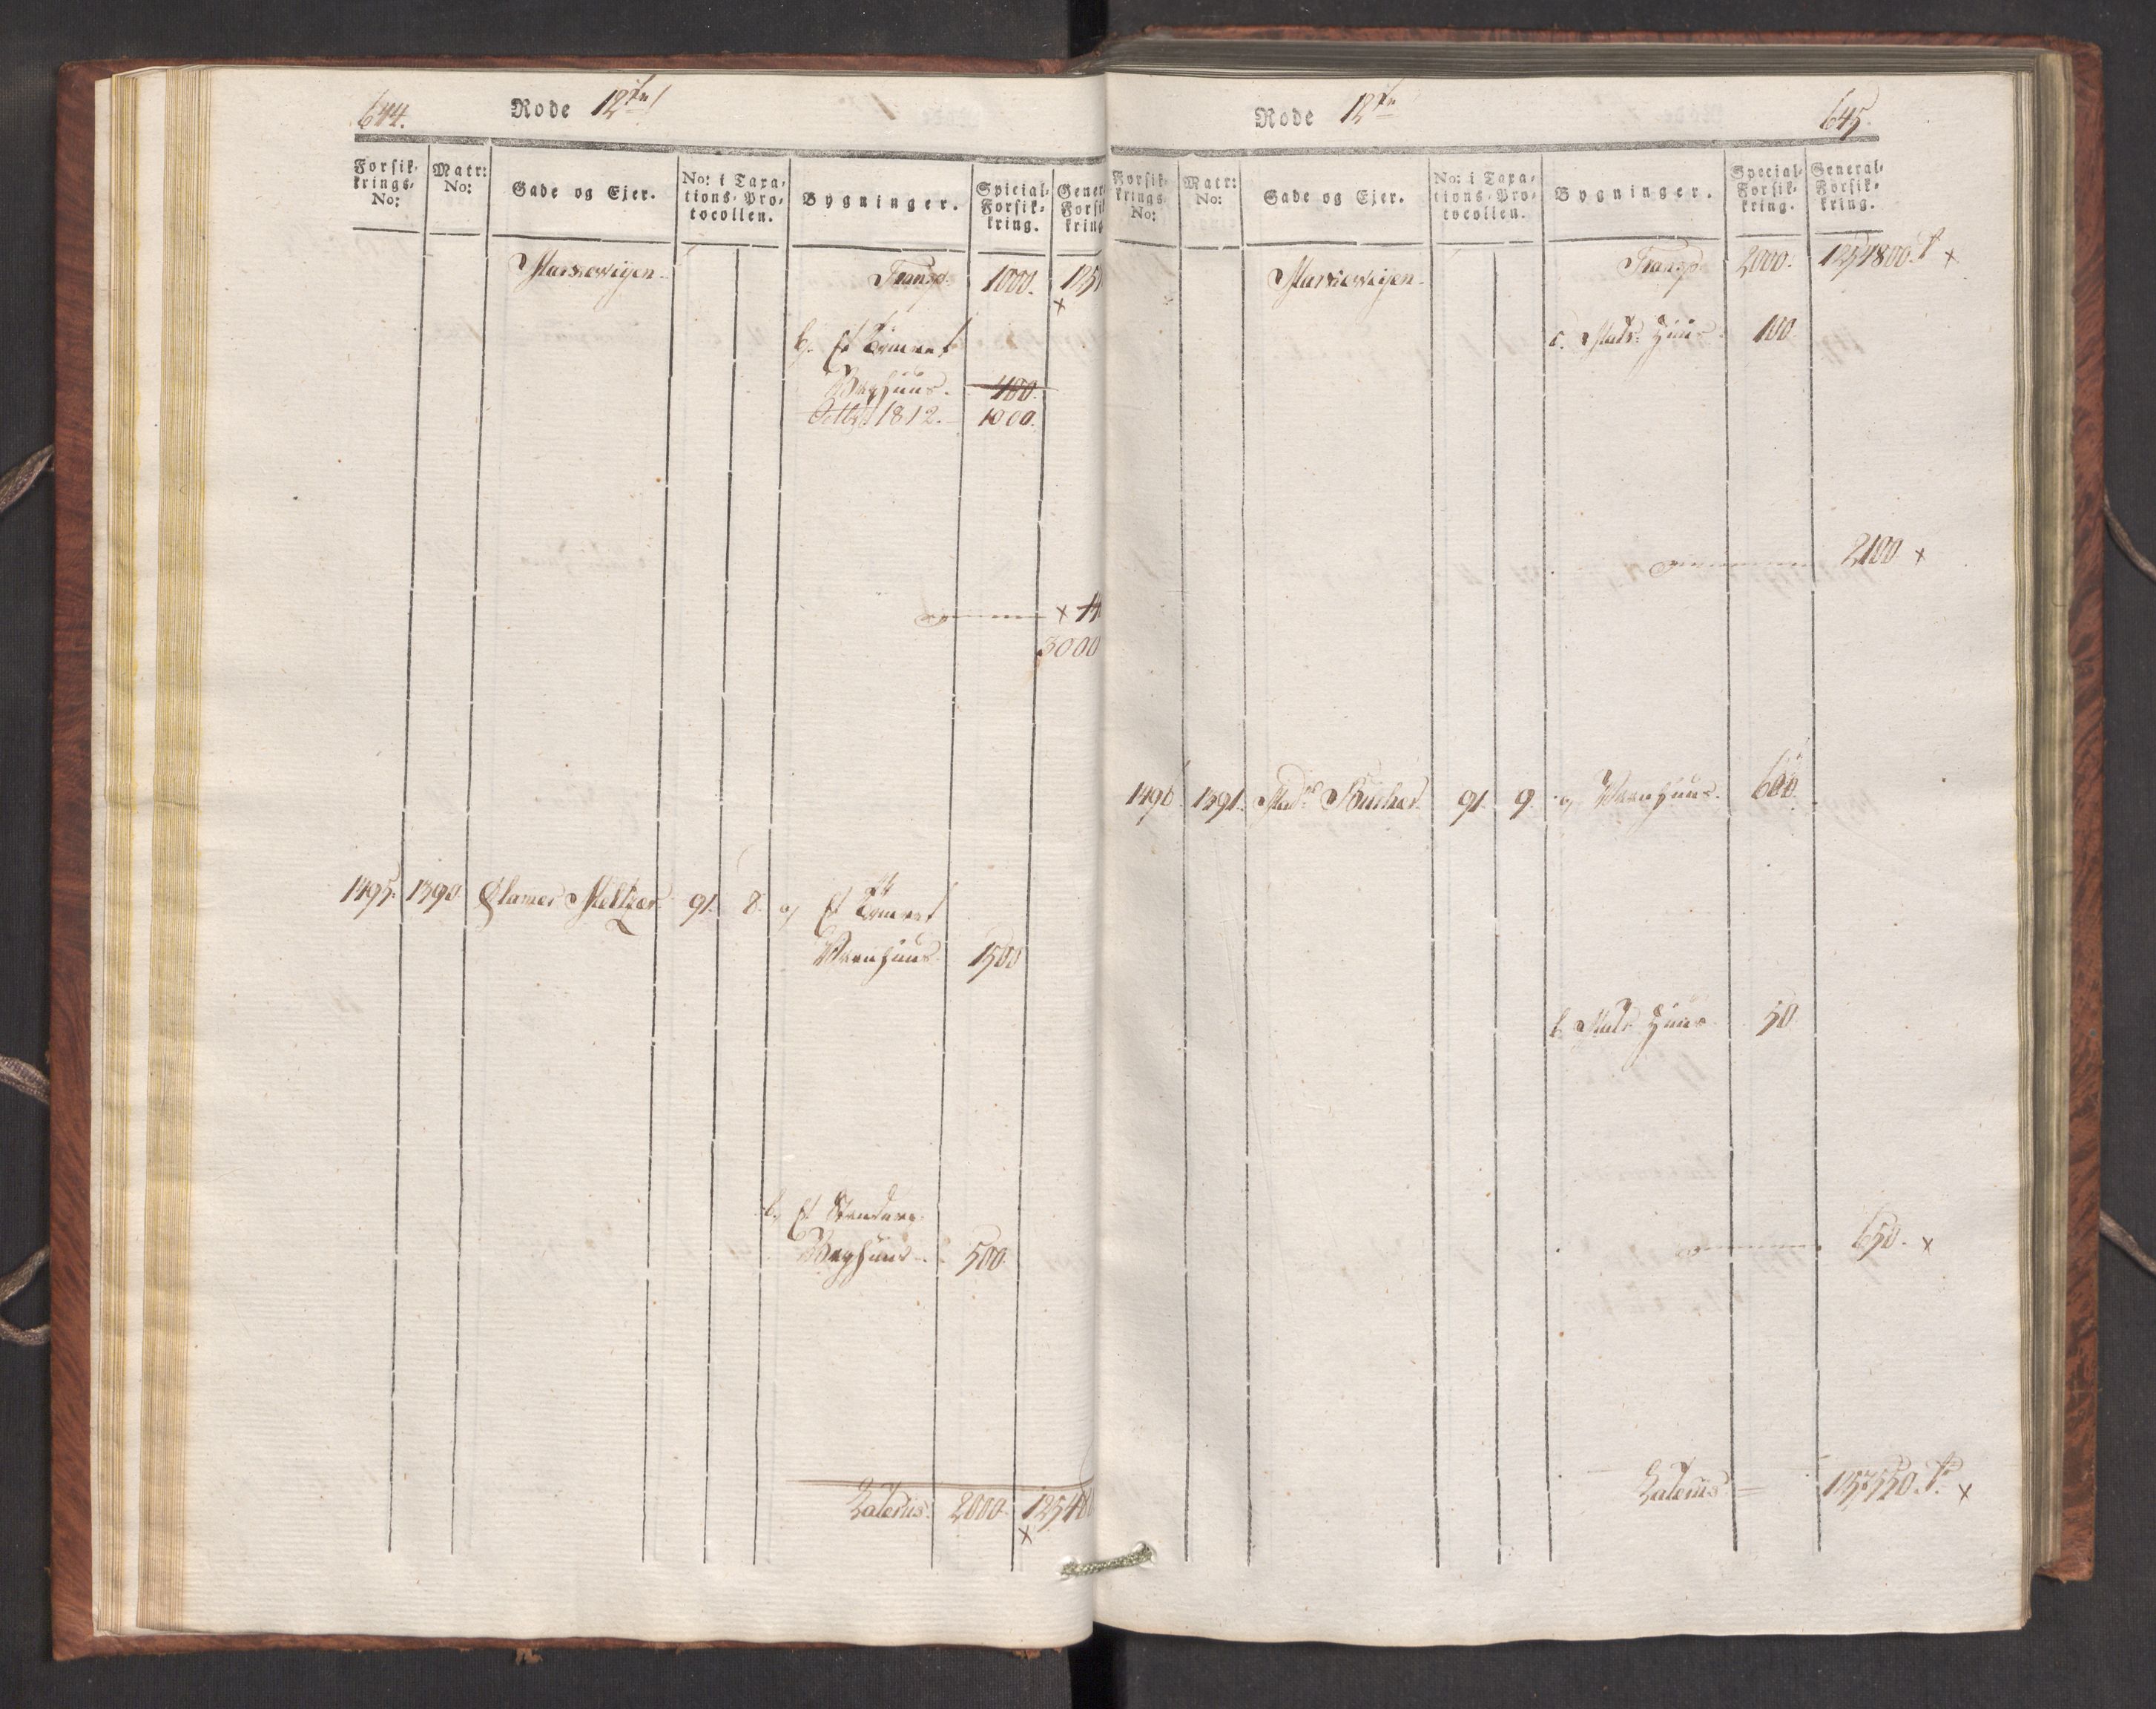 644. Rode 12te
Forsik-
krings-
No:
Matr:
No:
Gade og Ejer.
No: i Taxa-
tions-Pro-
tocollen.
Bygninger.
Special-
Forsik-
kring.
Gener
Forsi
kring
Marreweyen. Transp. 1000. 125
×
b. Et Tömret
Boghuus. 400.
Octbr 1812. 1000.
× 14
3000
1495. 1390 Clamer Meltzer 91. 8. a, Et Tömret
Vaanhuus 1500
b, Et Stenbyg:
Boghuus 500.
Lateriis. 2000. 12548
×
Rode 12te 645.
Forsik-
krings-
No:
Matr:
No:
Gade og Ejer.
No: i Taxa-
tions-Pro-
tocollen.
Bygninger.
Special-
Forsik-
kring.
General-
Forsik-
kring.
Marreweyen. Transp 2000. 1254800. ×
c. Mats Huus 100.
2100 ×
1496. 1391. Mad: 91. 9. a, Vaanhuus. 600.
b. Mats Huus 50.
650. ×
Lateriis 1257550. ×